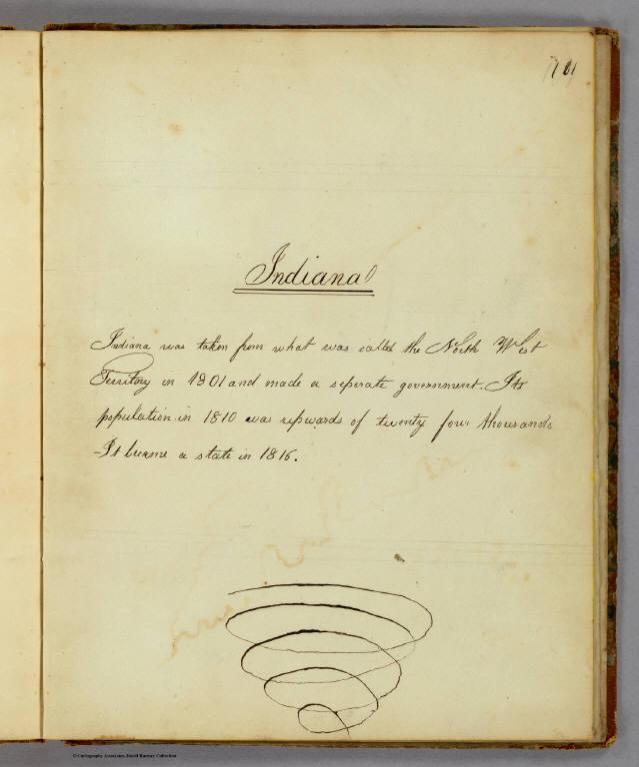 Indiana
Indiana was taken from what was called the North West
Territory in 1801 and made a seperate government. Its
population in 1810 was upwards of twenty four thousands
It became a state in 1816.
© Cartography Associates, David Rumsey Collection